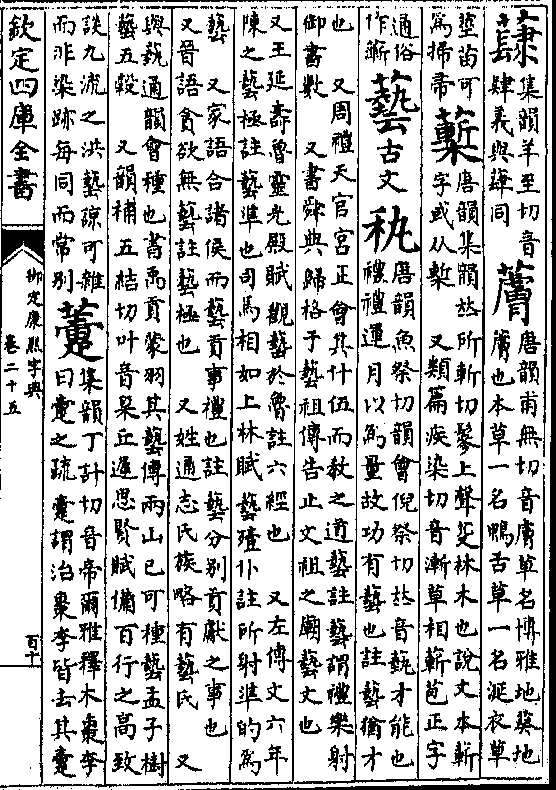 蕼集韻羊至切音
肄義與蕼同
蘆唐韻甫無切音膚草名博雅地葵地
膚也本草一名鴨舌草一名涎衣草
莖苗可
爲掃帚
蔪唐韻集韻𠀤所斬切摻上聲芟林木也說文本斬
字或从槧　又類篇疾染切音漸草相蔪苞正字
通俗
作蘄
藝古文秇唐韻魚祭切韻會倪祭切𠀤音埶才能也
禮禮運月以爲量故功有藝也註藝猶才
也　又周禮天官宮正會其什伍而敎之道藝註藝謂禮樂射
御書數　又書舜典歸格于藝祖傳告止文祖之廟藝文也
又王延壽魯靈光殿賦觀藝於魯註六經也　又左傳文六年
陳之藝極註藝準也司馬相如上林賦藝殪仆註所射準的爲
藝　又家語合諸侯而藝貢事禮也註藝分別貢獻之事也
又晉語貪欲無藝註藝極也　又姓通志氏族略有藝氏　又
與蓺通韻會種也書禹貢蒙羽其藝傳兩山已可種藝孟子樹
藝五穀　又韻補五結切叶音臬丘遲思賢賦備百行之高致
談九流之洪藝諒可雜
而非染跡每同而常別
藼集韻丁計切音帝爾雅釋木棗李
曰疐之疏疐謂治棗李皆去其疐
欽定四庫全書
御定康熙字典
卷二十五
百十